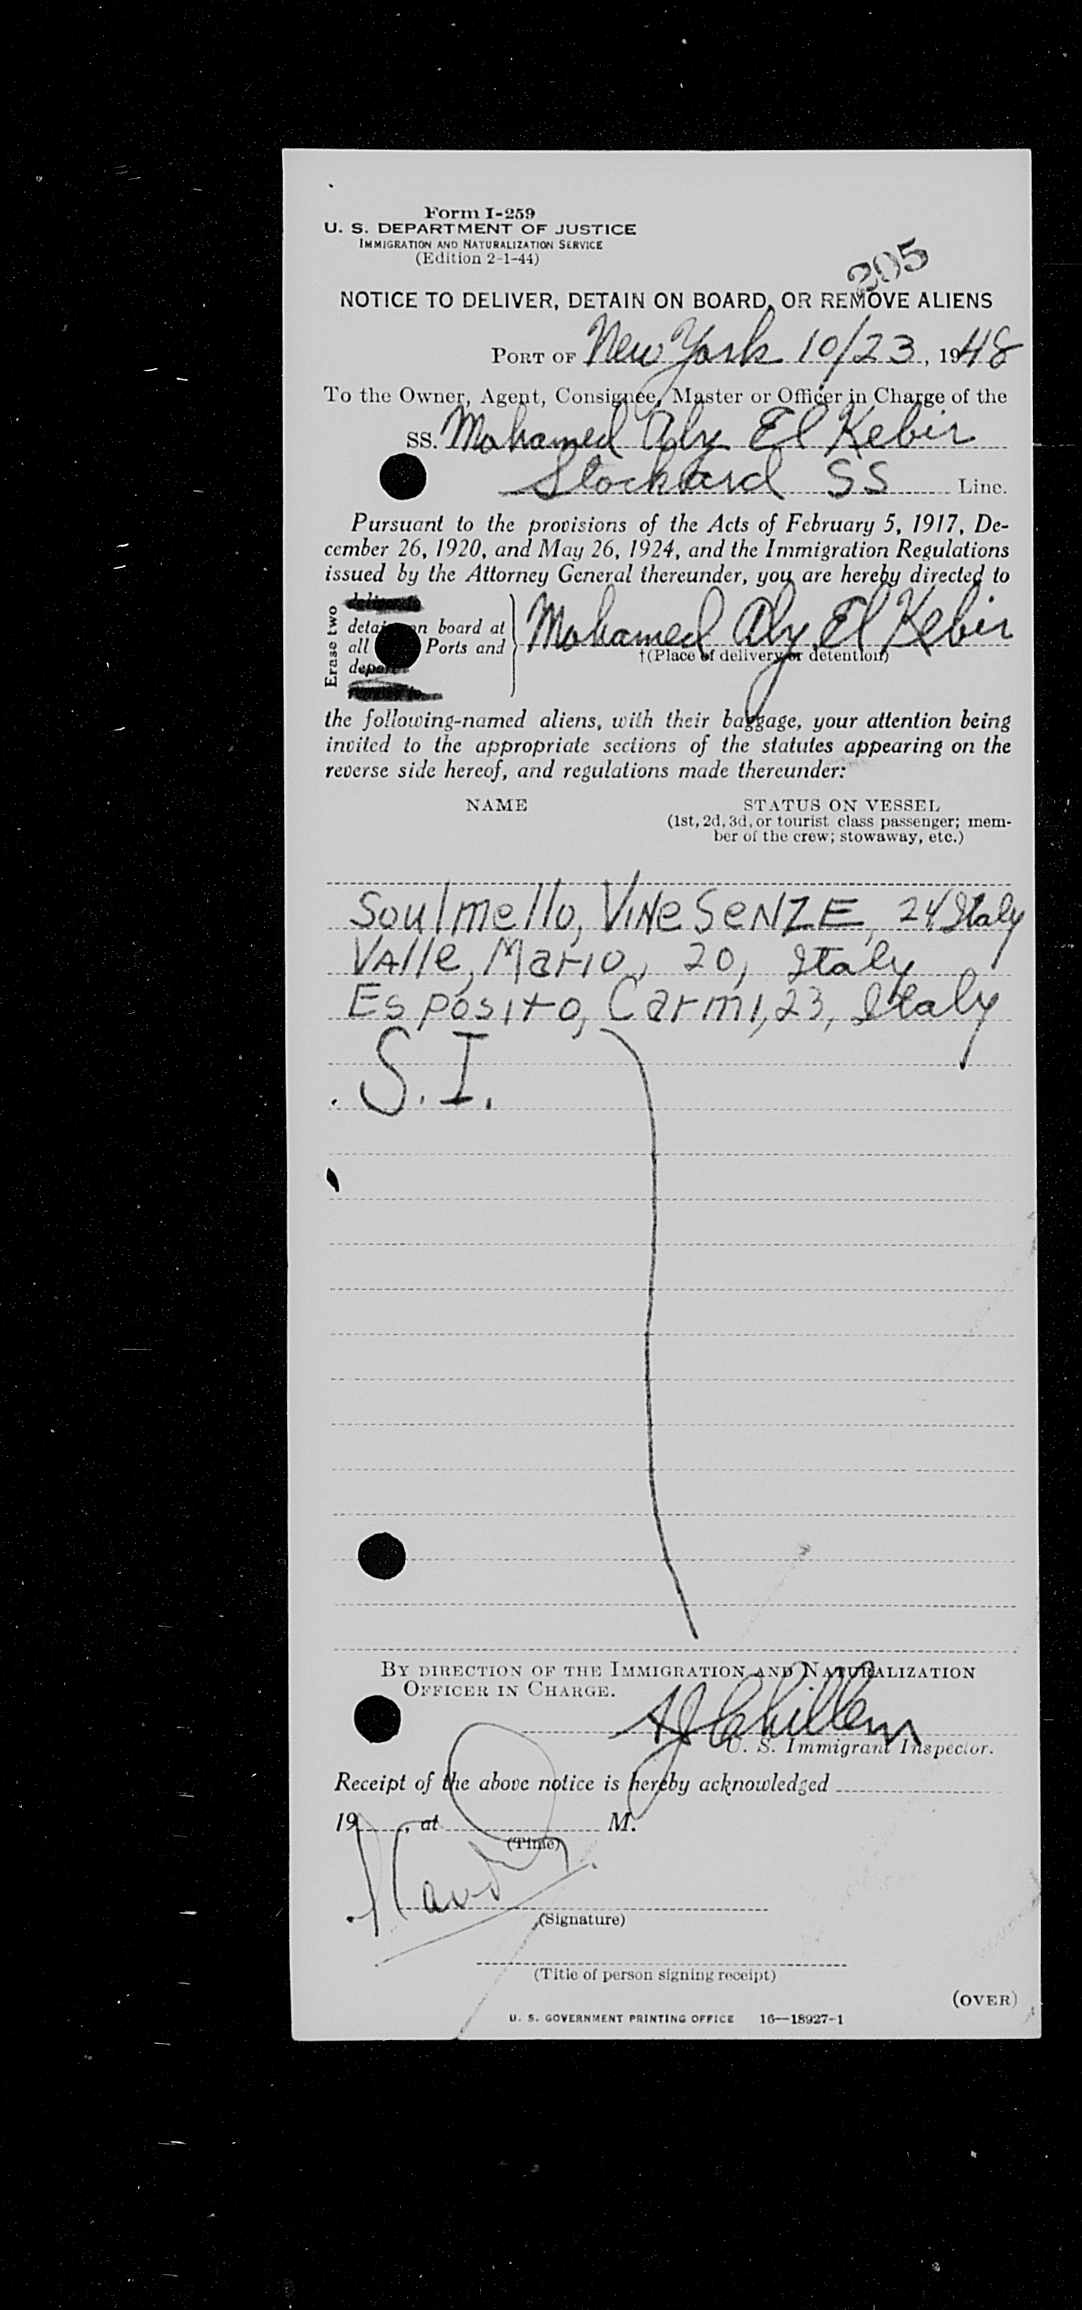 Form I-259
U. S. DEPARTMENT OF JUSTICE
IMMIGRATION AND NATURALIZATION SERVICE
(Edition 2-1-44)
205
NOTICE TO DELIVER, DETAIN ON BOARD, OR REMOVE ALIENS
PORT OF New York 10/23, 1948
To the Owner, Agent, Consignee, Master or Officer in Charge of the
SS. Mohamed Aly El Kebir
Stockard SS Line.
Pursuant to the provisions of the Acts of February 5, 1917, De-
cember 26, 1920, and May 26, 1924, and the Immigration Regulations
issued by the Attorney General thereunder, you are hereby directed to
Erase two
on board at
all Ports and
Mohamed Aly El Kebir
†(Place of delivery or detention)
the following-named aliens, with their baggage, your attention being
invited to the appropriate sections of the statutes appearing on the
reverse side hereof, and regulations made thereunder:
NAME STATUS ON VESSEL
(1st, 2d, 3d, or tourist class passenger; mem-
ber of the crew; stowaway, etc.)
Soulmello, VINeSeNZE, 24 Italy
VAlle, Mario, 20, Italy
Esposito, Carmi, 23, Italy
S.I.
BY DIRECTION OF THE IMMIGRATION AND NATURALIZATION
OFFICER IN CHARGE.
U. S. Immigrant Inspector.
Receipt of the above notice is hereby acknowledged
19 , at M.
(Time)
(Signature)
(Title of person signing receipt)
(OVER)
U. S. GOVERNMENT PRINTING OFFICE 16—18927-1